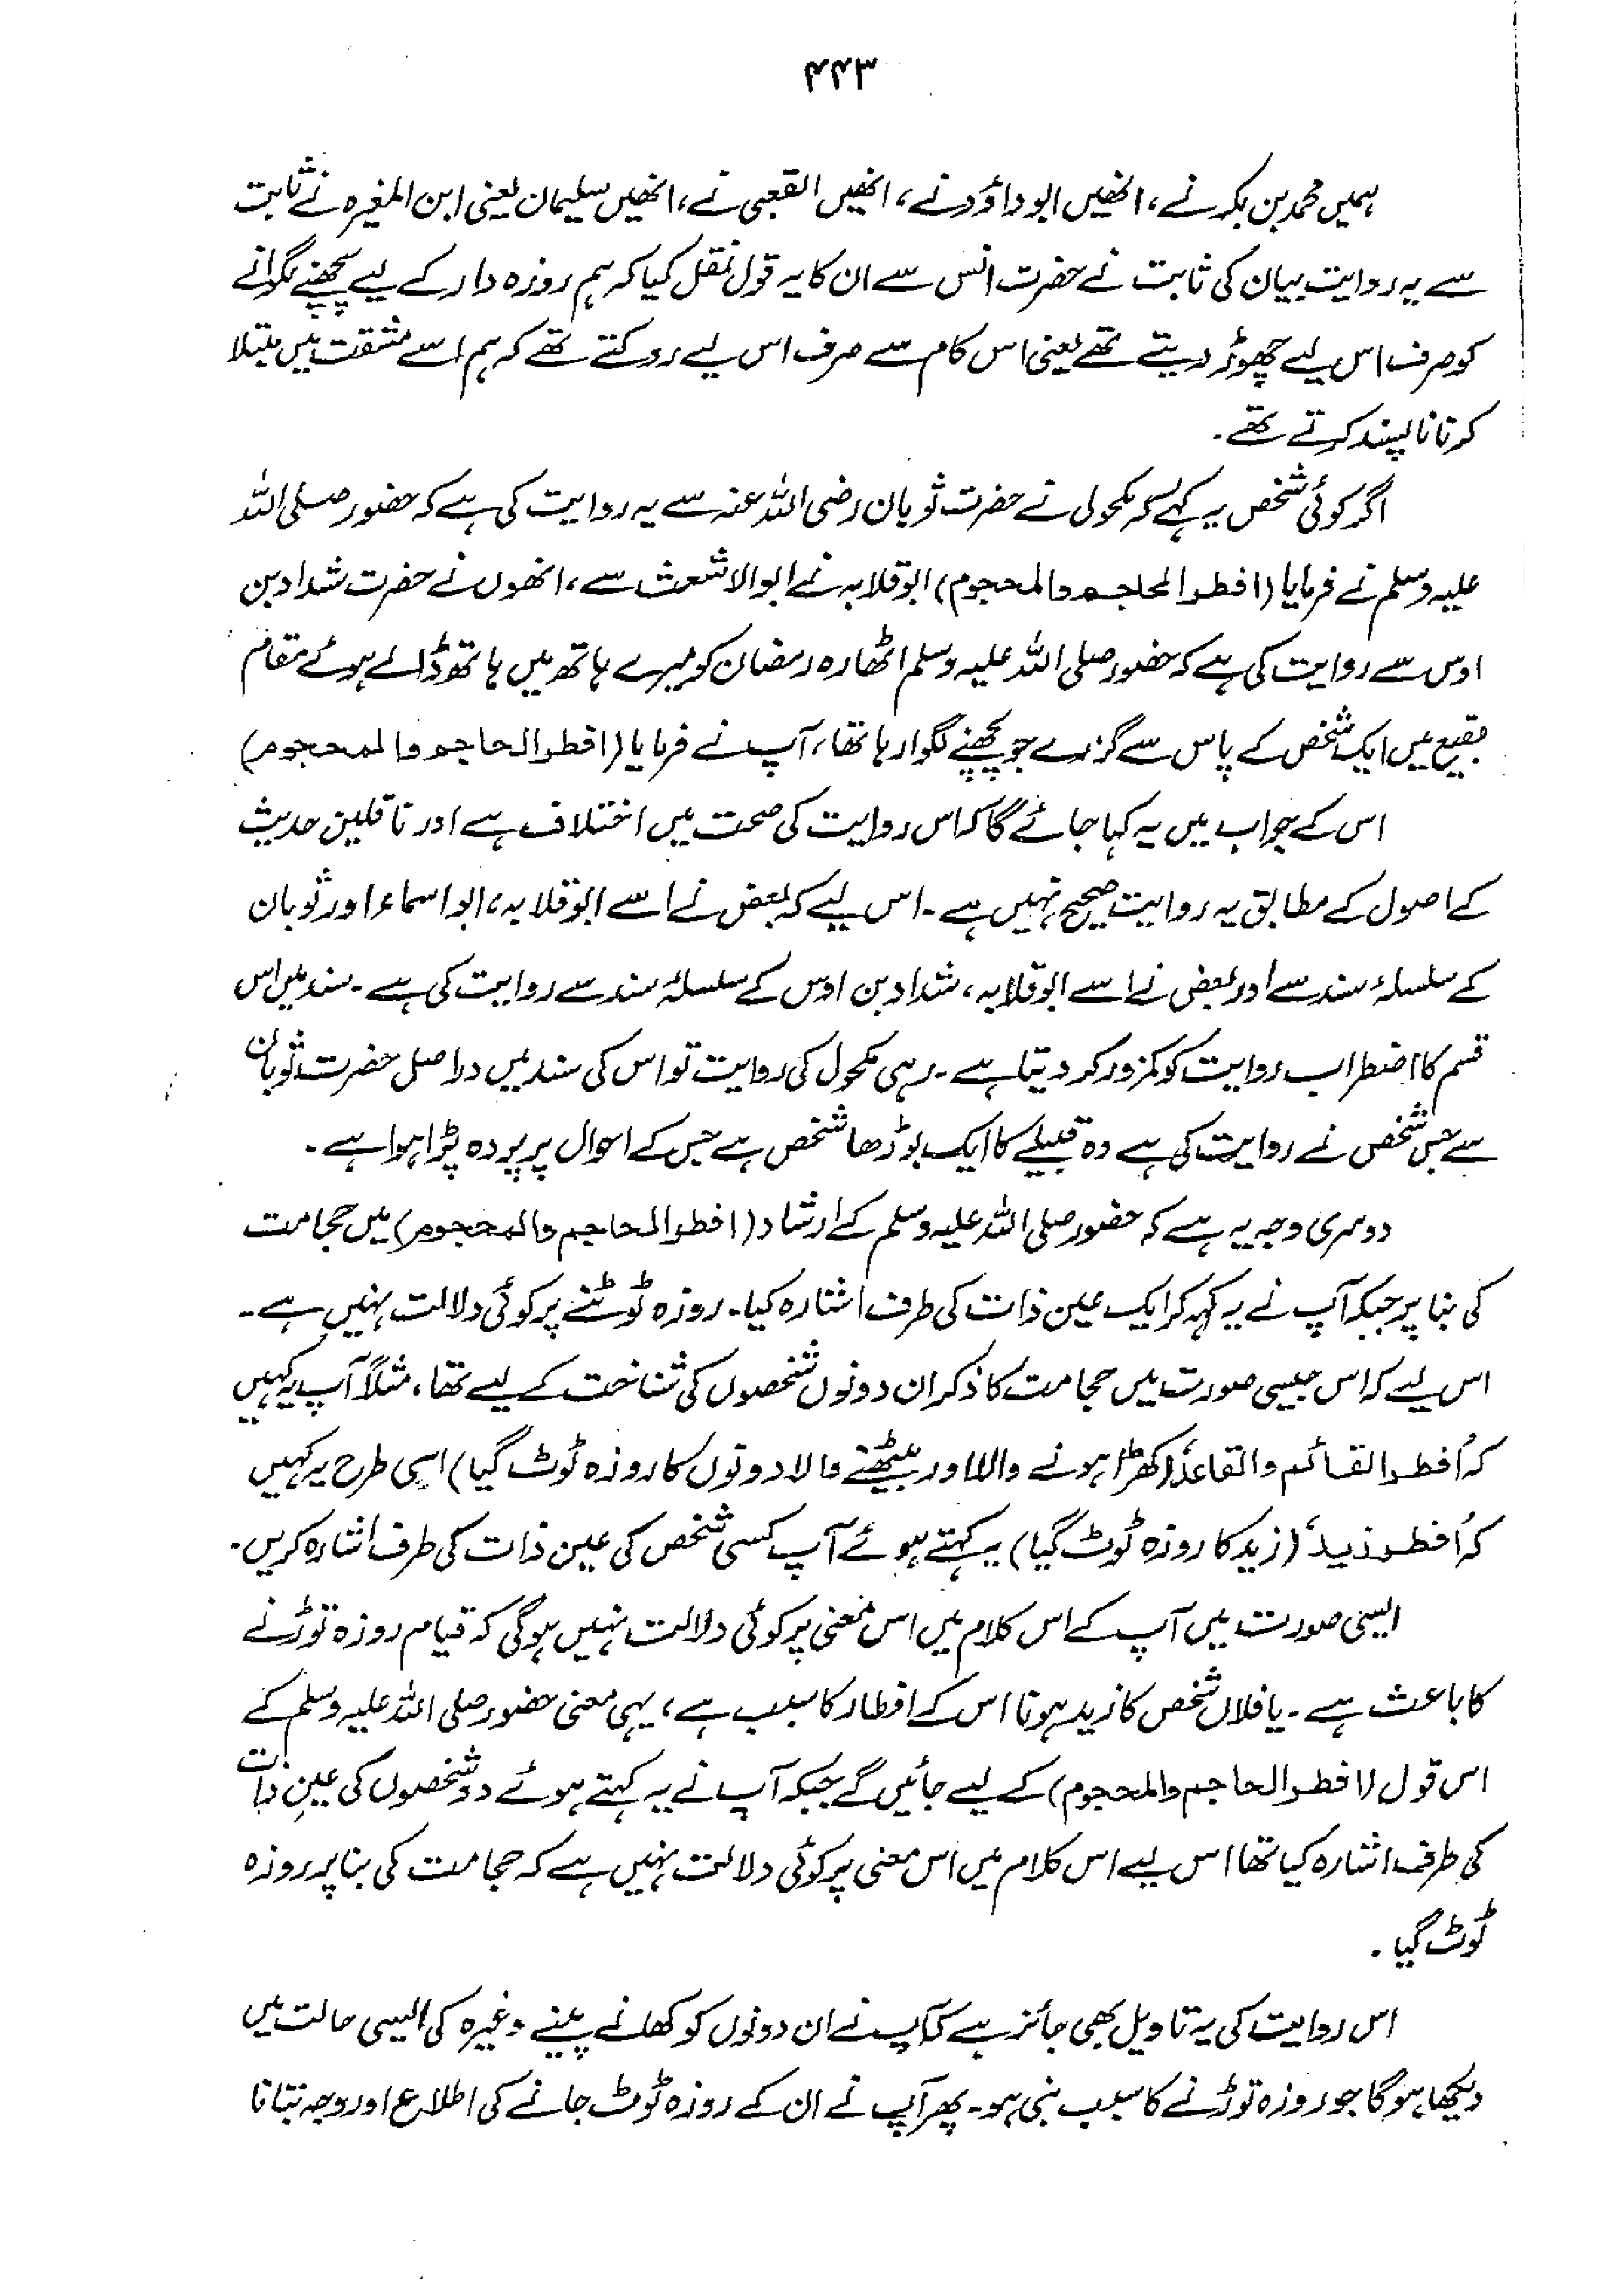 ۴۴۳
ہمیں محمد بن بکر نے، انھیں ابو داؤد نے، انھیں القعبی نے، انھیں سلیمان یعنی ابن المغیرہ نے ثابت
سے یہ روایت بیان کی ثابت نے حضرت انس سے ان کا یہ قول نقل کیا کہ ہم روزہ دار کے لیے پچھنے لگوانے
کو صرف اس لیے چھوڑ دیتے تھے یعنی اس کام سے صرف اس لیے روکتے تھے کہ ہم اسے مشقت میں مبتلا
کرنا ناپسند کرتے تھے۔
اگر کوئی شخص یہ کہے کہ مکحول نے حضرت ثوبان رضی اللہ عنہ سے یہ روایت کی ہے کہ حضور صلی اللہ
علیہ وسلم نے فرمایا (افطر الحاجم والمحجوم) ابو قلابہ نے ابوالاشعث سے، انھوں نے حضرت شداد بن
اوس سے روایت کی ہے کہ حضور صلی اللہ علیہ وسلم اٹھارہ رمضان کو میرے ہاتھ میں ہاتھ ڈالے ہوئے مقام
بقیع میں ایک شخص کے پاس سے گزرے جو پچھنے لگوا رہا تھا، آپ نے فرمایا (افطر الحاجم والمحجوم)
اس کے جواب میں یہ کہا جائے گا کہ اس روایت کی صحت میں اختلاف ہے اور ناقلین حدیث
کے اصول کے مطابق یہ روایت صحیح نہیں ہے۔ اس لیے کہ بعض نے اسے ابو قلابہ، ابو اسماء اور ثوبان
کے سلسلۂ سند سے اور بعض نے اسے ابو قلابہ، شداد بن اوس کے سلسلۂ سند سے روایت کی ہے۔ سند میں اس
قسم کا اضطراب روایت کو کمزور کر دیتا ہے۔ رہی مکحول کی روایت تو اس کی سند میں دراصل حضرت ثوبان
سے جس شخص نے روایت کی ہے وہ قبیلے کا ایک بوڑھا شخص ہے جس کے احوال پر پردہ پڑا ہوا ہے۔
دوسری وجہ یہ ہے کہ حضور صلی اللہ علیہ وسلم کے ارشاد (افطر الحاجم والمحجوم) میں حجامت
کی بنا پر جبکہ آپ نے یہ کہہ کر ایک عین ذات کی طرف اشارہ کیا۔ روزہ ٹوٹنے پر کوئی دلالت نہیں ہے۔
اس لیے کہ اس جیسی صورت میں حجامت کا ذکر ان دونوں شخصوں کی شناخت کے لیے تھا، مثلاً آپ یہ کہیں
کہ "افطر القائم والقاعد" (کھڑا ہونے والا اور بیٹھنے والا دونوں کا روزہ ٹوٹ گیا) اسی طرح یہ کہیں
کہ "افطر زید" (زید کا روزہ ٹوٹ گیا) یہ کہتے ہوئے آپ کسی شخص کی عین ذات کی طرف اشارہ کریں۔
ایسی صورت میں آپ کے اس کلام میں اس معنی پر کوئی دلالت نہیں ہوگی کہ قیام روزہ توڑنے
کا باعث ہے۔ یا فلاں شخص کا زید ہونا اس کے افطار کا سبب ہے، یہی معنی حضور صلی اللہ علیہ وسلم کے
اس قول (افطر الحاجم والمحجوم) کے لیے جائیں گے جبکہ آپ نے یہ کہتے ہوئے دو شخصوں کی عینِ ذات
کی طرف اشارہ کیا تھا اس لیے اس کلام میں اس معنی پر کوئی دلالت نہیں ہے کہ حجامت کی بنا پر روزہ
ٹوٹ گیا۔
اس روایت کی یہ تاویل بھی جائز ہے کہ آپ نے ان دونوں کو کھانے پینے وغیرہ کی ایسی حالت میں
دیکھا ہوگا جو روزہ توڑنے کا سبب بنی ہو۔ پھر آپ نے ان کے روزہ ٹوٹ جانے کی اطلاع اور وجہ بتانا